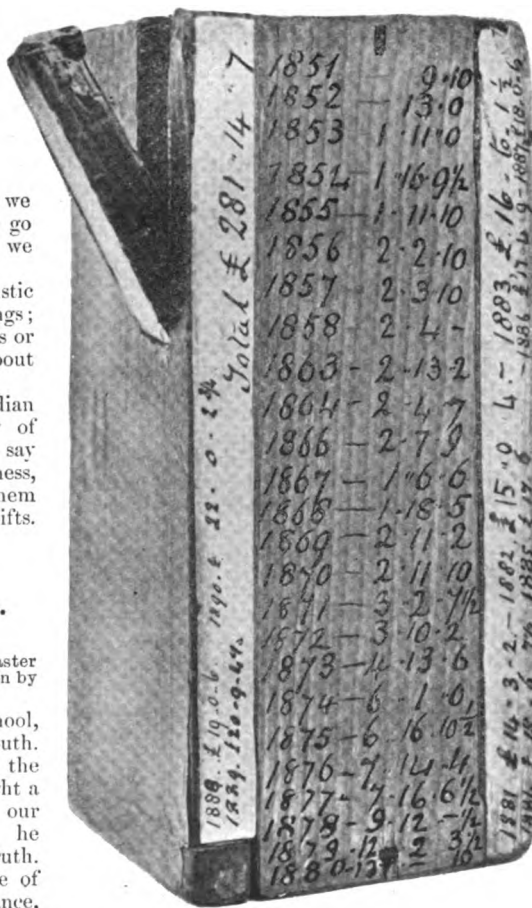 we
go
we
stic
ngs;
s or
bout
dian
of
say
ness,
hem
ifts.
aster
n by
hool,
uth.
the
ght a
our
he
ruth.
e of
ance.
Total £ 281 · 14 · 7
1888. £19-0-6. 1890. £ 22 · 0 · 2 3/4
1889. £20-9-4 1/2
1851 9·10
1852 — 13·0
1853 1·11·0
1854 - 1·16·9½
1855 - 1·11·10
1856 2·2·10
1857 2·3·10
1858 2·4 -
1863 - 2·13·2
1864 - 2·4·7
1866 - 2·7·9
1867 - 1·6·6
1868 - 1·18·5
1869 - 2·11·2
1870 - 2·11·10
1871 - 3·2·7½
1872 - 3·10·2
1873 - 4·13·6
1874 - 6·1·0
1875 - 6·16·10½
1876 - 7·14·4
1877 - 7·16·6½
1878 - 9·12·-½
1879 - 12 3½
1880 - 10
1881 £14-3-2.- 1882. £15·9·4.- 1883. £16-